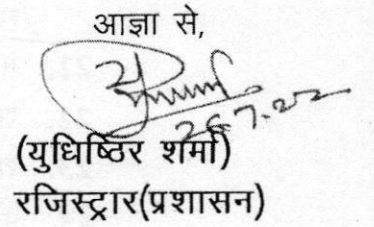 आज्ञा से,
26.7.22
(युधिष्ठिर शर्मा)
रजिस्ट्रार(प्रशासन)